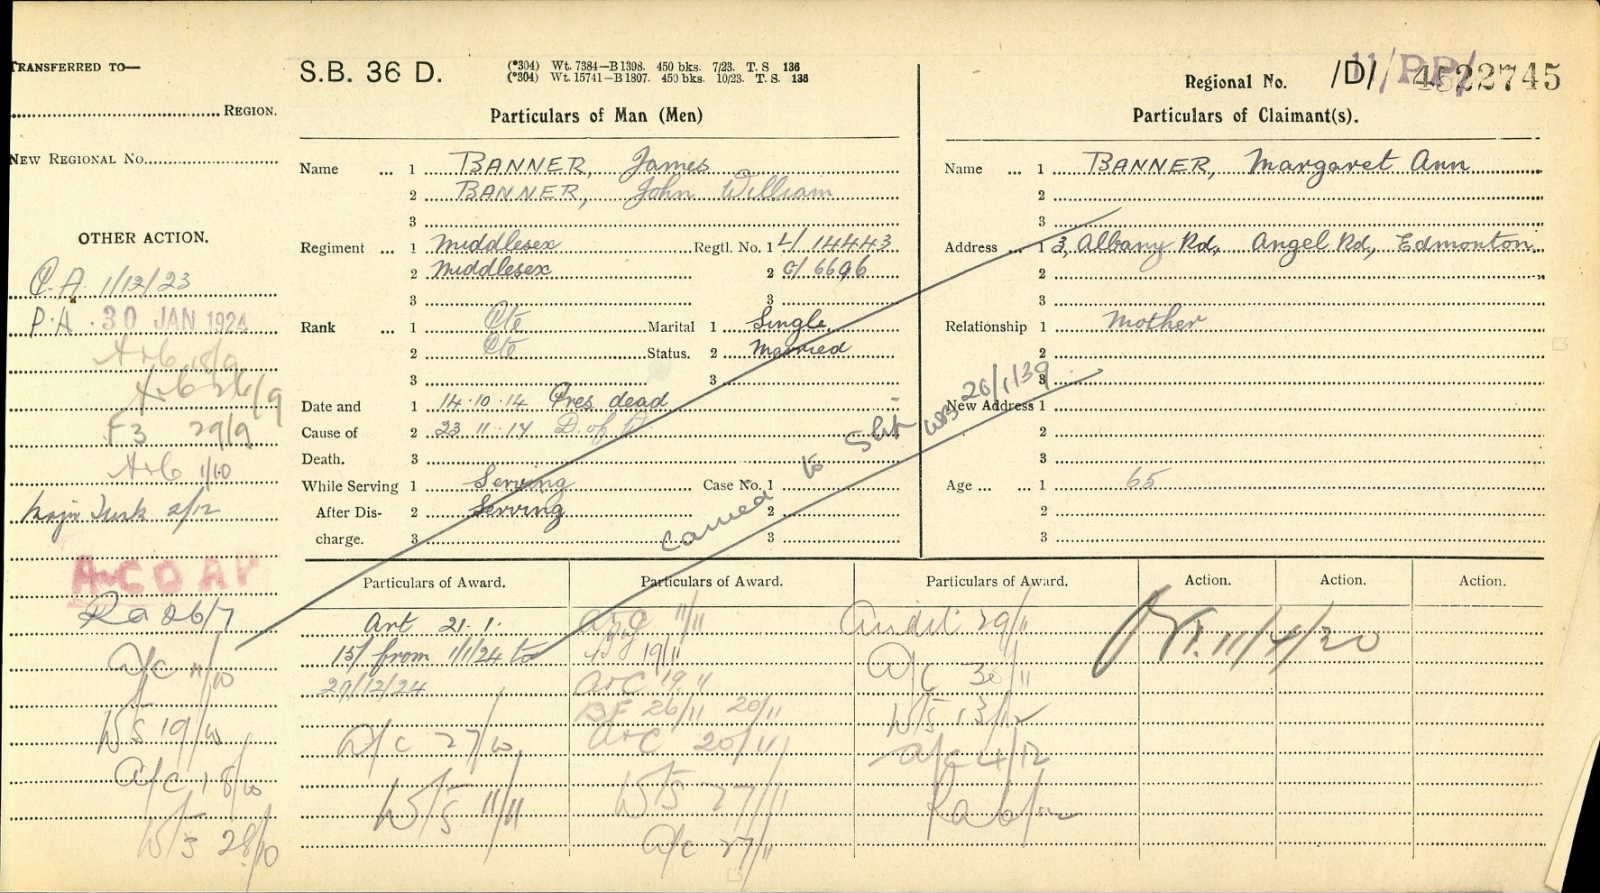 TRANSFERRED TO—
REGION.
NEW REGIONAL No.
OTHER ACTION.
P.A. 1/12/23
P.A. 30 JAN 1924
A+C 18/9
A+C 26/9
F3 29/9
A+C 1/10
2/12
Ra 26/7
A/C 11/10
W/S 19/10
A/C 18/10
W/S 28/10
S.B. 36 D.
(*304) Wt. 7384—B1398. 450 bks. 7/23. T. S 136
(*304) Wt. 15741—B1807. 450 bks. 10/23. T. S. 136
Particulars of Man (Men)
Name ... 1 BANNER, James
2 BANNER, John William
3
Regiment ... 1 Middlesex Regtl. No. 1 L/ 14443
2 Middlesex 2 G/ 6696
3 3
Rank ... 1 Pte Marital 1 Single
2 Pte Status. 2 Married
3 3
Date and 1 14.10.14 Pres. dead
Cause of 2 23.11.17 D. of W
Death. 3
While Serving 1 Serving Case No. 1
After Dis- 2 Serving 2
charge. 3 3
Regional No. /D/ 11/PP/ 22745
Particulars of Claimant(s).
Name ... 1 BANNER, Margaret Ann
2
3
Address ... 1 3, Albany Rd, Angel Rd, Edmonton
2
3
Relationship 1 Mother
2
3
New Address 1
2
3
Age ... ... 1 65
2
3
to Slip 20/1/39
Particulars of Award. Particulars of Award. Particulars of Award. Action. Action. Action.
Art 21.1.
15/ from 1/1/24 to
29/12/24
A/C 27/10
W/S 11/11
11/11
19/11
A+C 19.11
BF 26/11 20/11
A+C 20/11
W/S 27/11
A/C 27/11
Audit 29/11
A/C 30/11
W/S 13/12
A/C 4/12
11/4/30